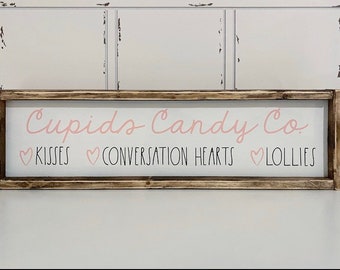 Cupids Candy Co.
♡KISSES ♡CONVERSATION HEARTS ♡LOLLIES